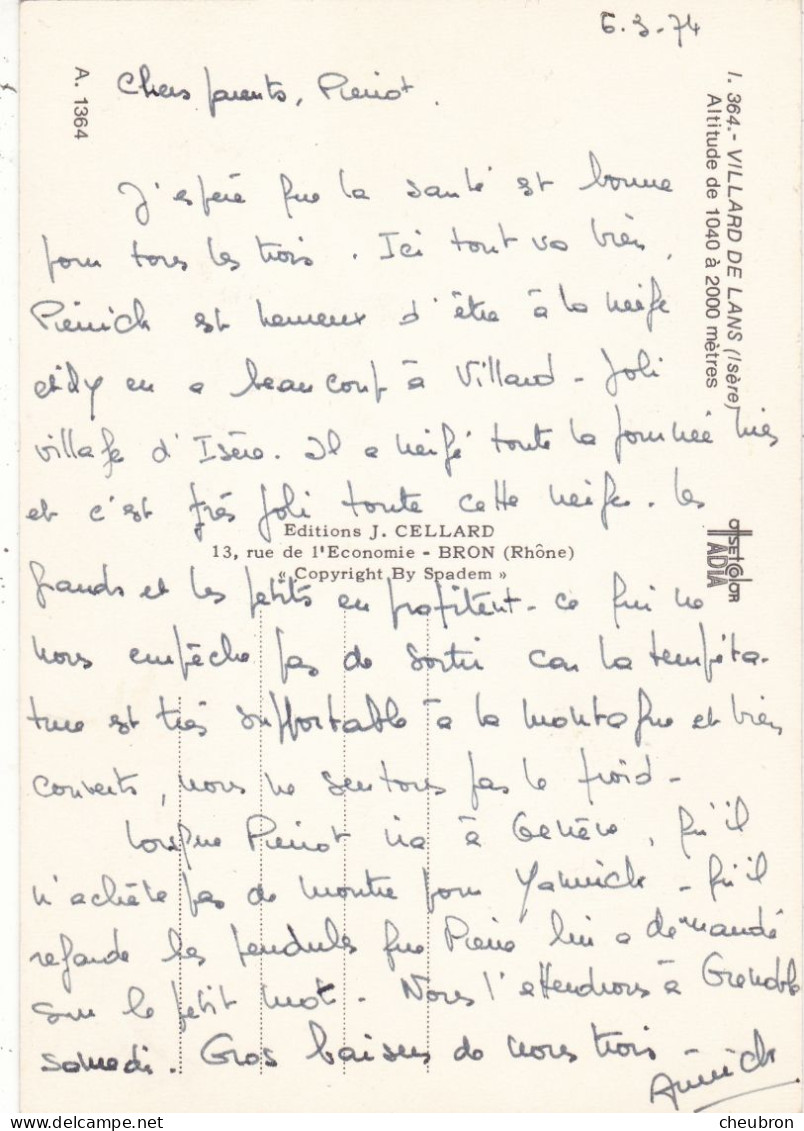 6.3.74
Chers parents, Pierrot.
J'espère que la santé est bonne
pour tous les trois. Ici tout va bien,
est heureux d'être à la neige
et il y en a beaucoup à Villard - Joli
village d'Isère. Il a neigé toute la journée hier
et c'est très joli toute cette neige. Les
grands et les petits en profitent - ce qui ne
nous empêche pas de sortir car la tempéra-
ture est très supportable à la montagne et bien
couverts, nous ne sentons pas le froid -
Lorsque Pierrot ira à Genève, qu'il
n'achète pas de montre pour Yannick - qu'il
regarde les pendules que Pierre lui a demandé
sur le petit mot. Nous l'attendrons à Grenoble
samedi. Gros baisers de nous trois
Annick
A. 1364
I. 364.- VILLARD DE LANS (Isère)
Altitude de 1040 à 2000 mètres
Editions J. CELLARD
13, rue de l'Economie - BRON (Rhône)
« Copyright By Spadem »
OFFSETCOLOR
IADIA
cheubron